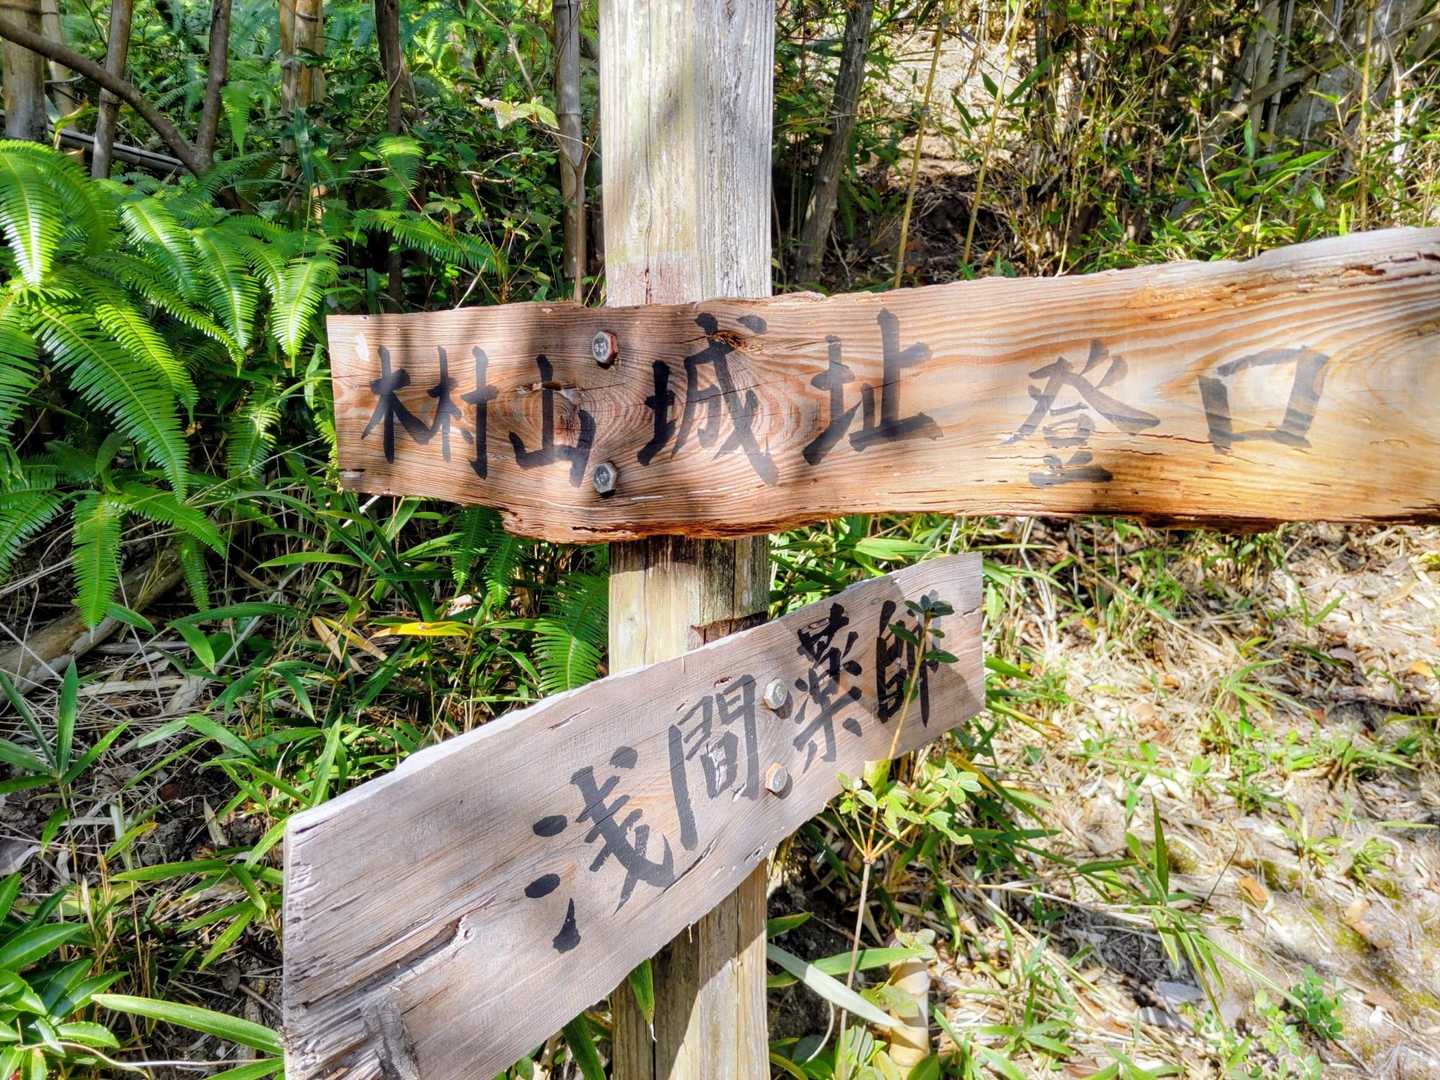 木村山城址 登口
浅間薬師